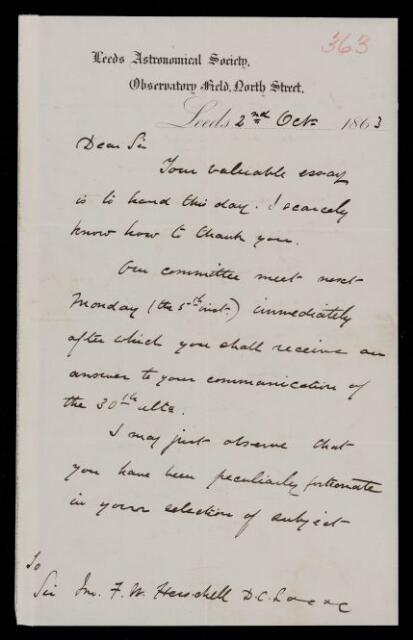 363
Leeds Astronomical Society,
Observatory Field, North Street,
Leeds 2nd Oct. 1863
Dear Sir
Your valuable essay
is to hand this day. I scarcely
know how to thank you.
Our committee meet next
Monday (the 5th inst.) immediately
after which you shall receive an
answer to your communication of
the 30th ulto.
I may just observe that
you have been peculiarly fortunate
in your selection of subject
To
Sir Jno. F. W. Herschell D.C.L. &c &c